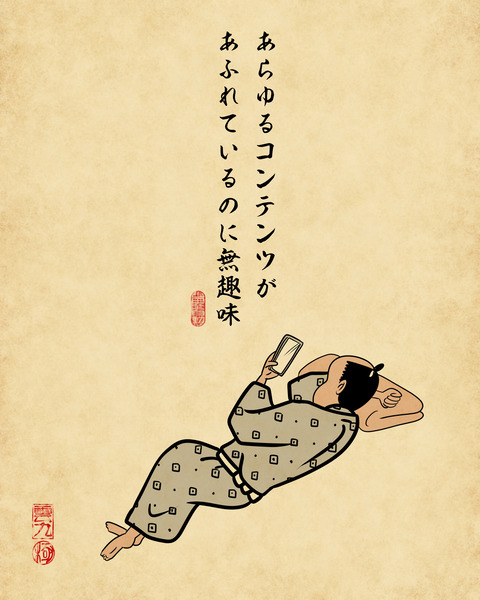 あらゆるコンテンツが
あふれているのに無趣味